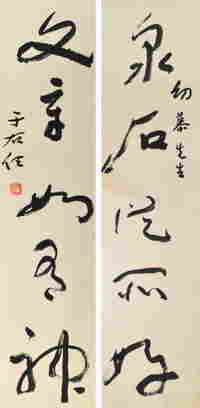 泉石從所好
幼慕先生
文章如有神
于右任